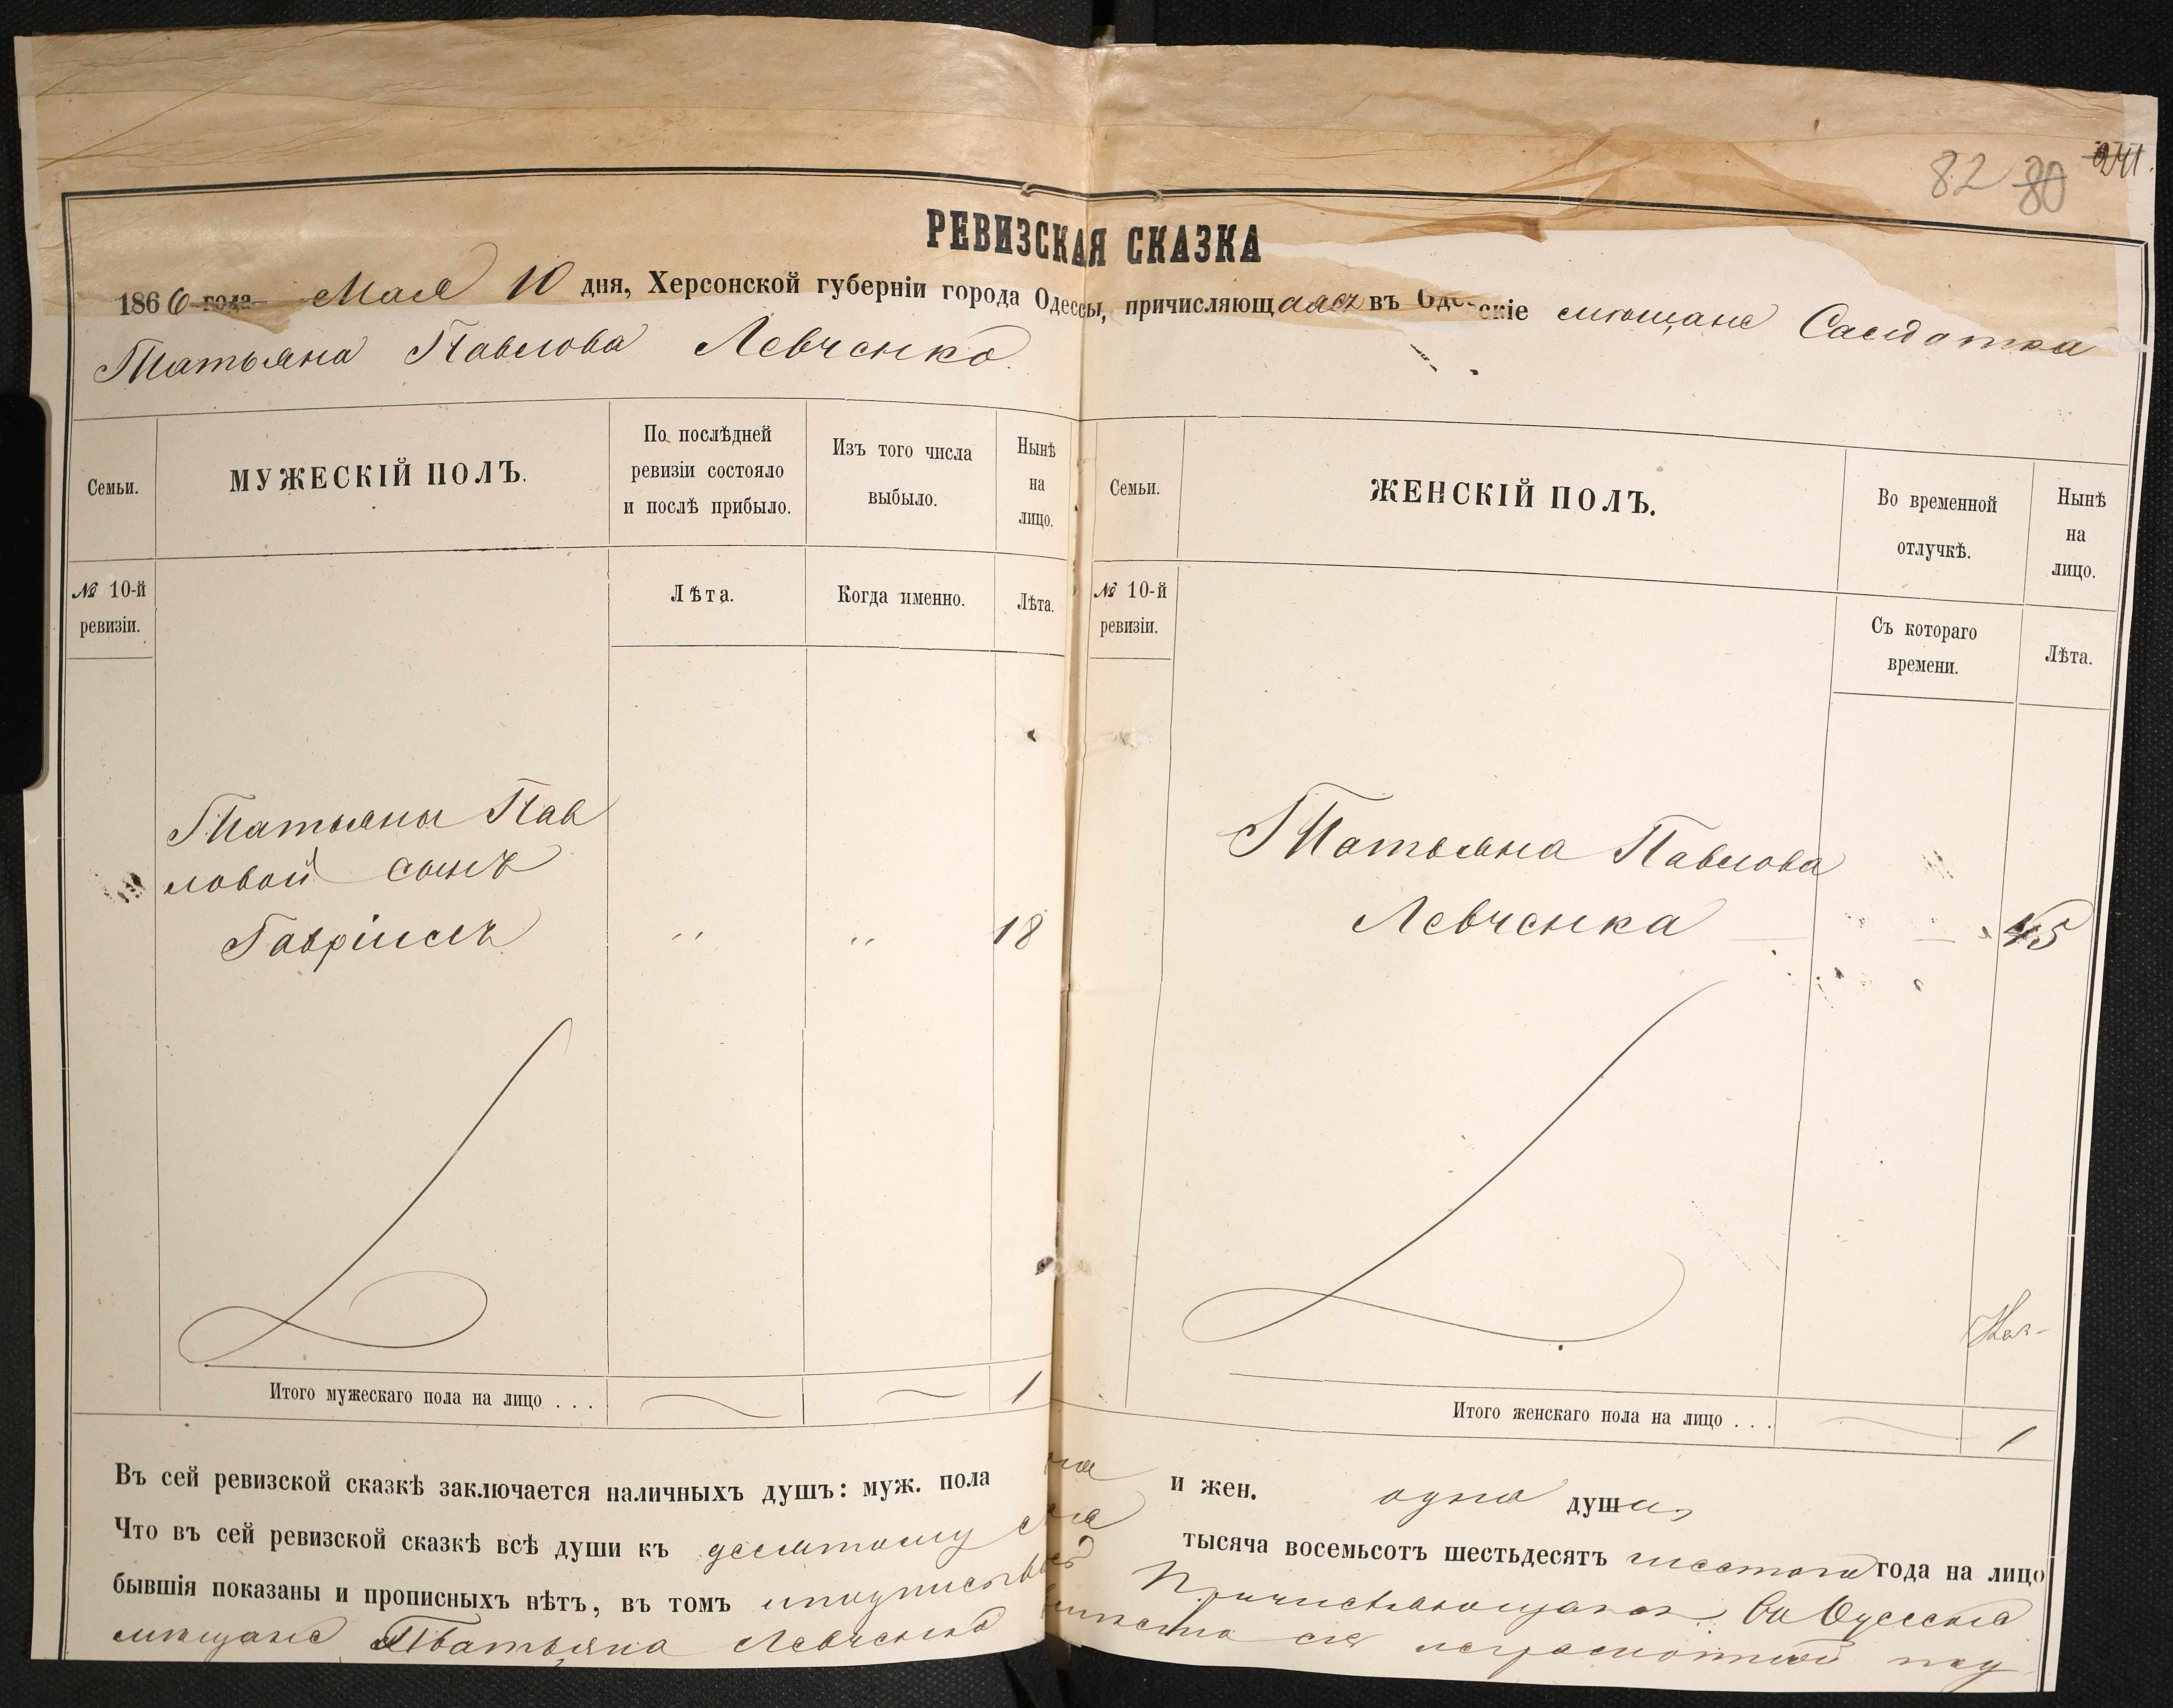 241.
82 80
РЕВИЗСКАЯ СКАЗКА
1866 года Мая 10 дня, Херсонской губерніи города Одессы, причисляющаяся въ Одесскіе мѣщане Салдатка
Татьяна Павлова Левченко.
Семьи.
МУЖЕСКІЙ ПОЛЪ.
По послѣдней
ревизіи состояло
и послѣ прибыло.
Изъ того числа
выбыло.
Нынѣ
на
лицо.
№ 10-й
ревизіи.
Лѣта.
Когда именно.
Лѣта.
Татьяны Пав
ловой сынъ
Гавріилъ " " 18
Итого мужескаго пола на лицо . . . 1
Семьи.
ЖЕНСКІЙ ПОЛЪ.
Во временной
отлучкѣ.
Нынѣ
на
лицо.
№ 10-й
ревизіи.
Съ котораго
времени.
Лѣта.
Татьяна Павлова
Левченка 45
Итого женскаго пола на лицо . . . 1
Въ сей ревизской сказкѣ заключается наличныхъ душъ: муж. пола и жен. одна души
Что въ сей ревизской сказкѣ всѣ души къ десятому мая тысяча восемьсотъ шестьдесятъ шестого года на лицо
бывшія показаны и прописныхъ нѣтъ, въ томъ и подписываюсь Причисляющаяся въ Одесскіе
мѣщане Татьяна Левченко вмѣсто ея неграмотной под